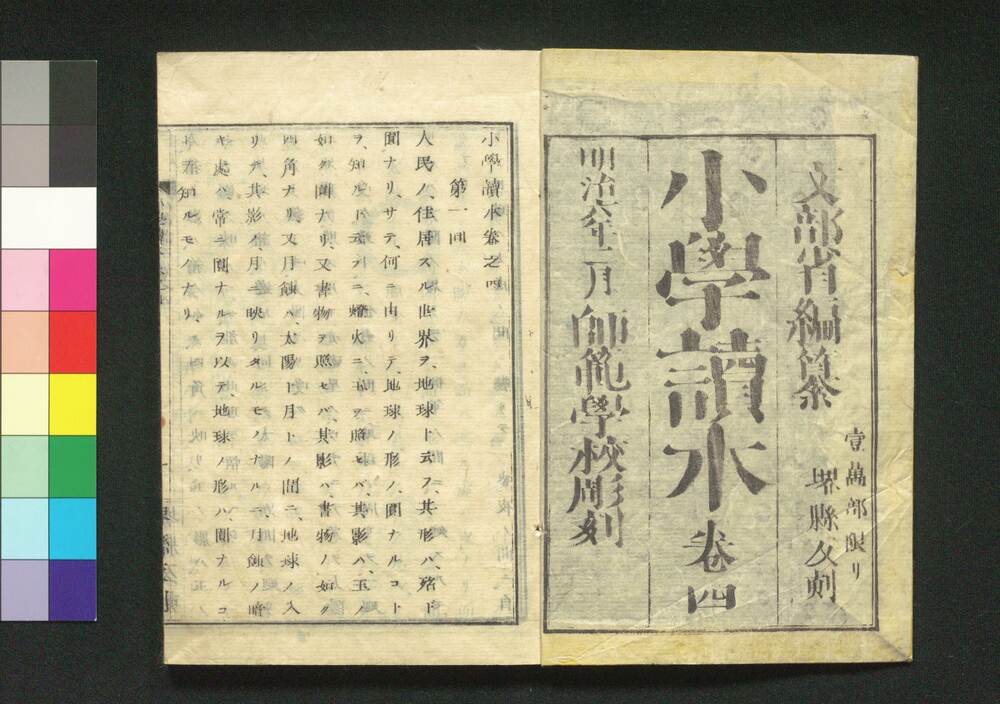 文部省編纂
壹萬部限リ
堺縣反刻
小學讀本 卷四
明治六年二月師範學校彫刻
小學讀本卷之四
第一回
人民ノ、住居スル世界ヲ、地球ト云フ、其形ハ、殆ド
圓ナリ、サテ、何ニ由リテ、地球ノ形ノ、圓ナルコト
ヲ、知ルト云フニ、燈火ニ、玉ヲ照セバ、其影ハ、玉ノ
如ク圓ナリ、又書物ヲ照セバ、其影ハ、書物ノ如ク
四角ナリ、又月蝕ハ、太陽ト月トノ間ニ、地球ノ入
リテ、其影ノ、月ニ映リタルモノナルニ、月蝕ノ暗
キ處ハ、常ニ圓ナルヲ以テ、地球ノ形ハ、圓ナルコ
トヲ、知ルモノナリ、